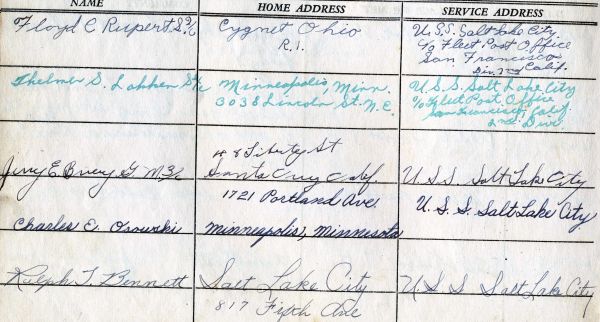 NAME HOME ADDRESS SERVICE ADDRESS
Floyd C Rupert S 1/c Cygnet Ohio U.S.S. Salt Lake City
R.1. c/o Fleet Post Office
San Francisco
Div. 2nd Calif.
Thelmer S. Lokken S 1/c Minneapolis, Minn. U.S.S. Salt Lake City
3038 Lincoln St. N.E. c/o Fleet Post Office
San Francisco, Calif.
2nd Div.
48 Liberty St
Jerry E G M 3/c Santa Cruz Calif U.S.S. Salt Lake City
1721 Portland Ave U.S.S. Salt Lake City
Charles E. Osowski Minneapolis, Minnesota
Ralph T. Bennett Salt Lake City U S S Salt Lake City
817 Fifth Ave